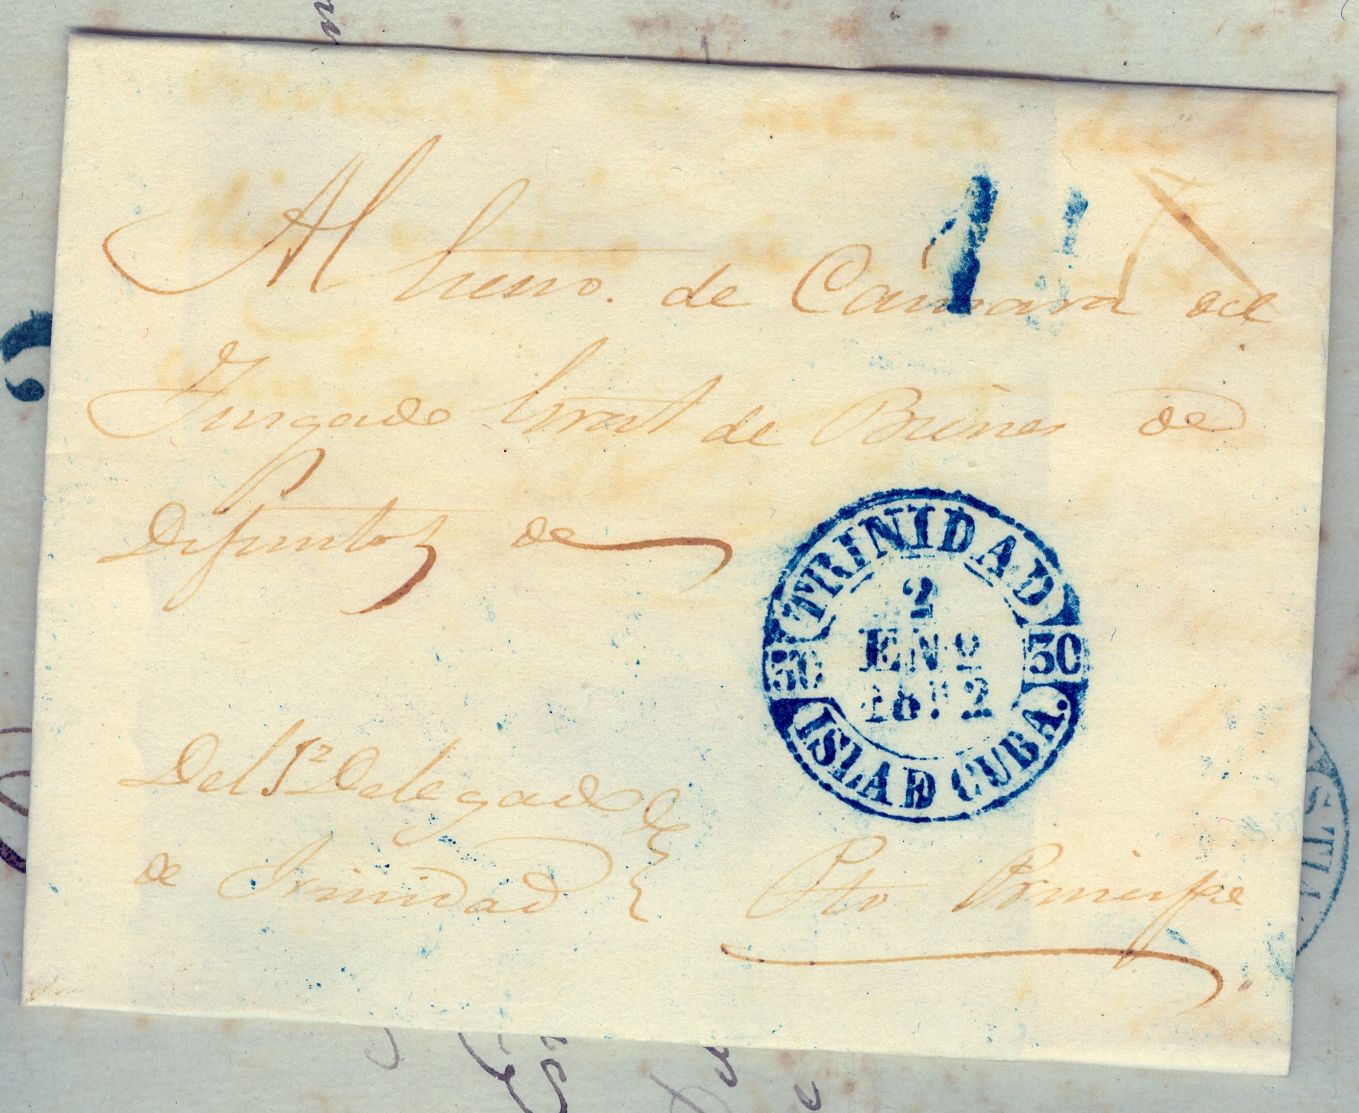 Al de Camara del
Juzgado Gral de Bienes de
Difuntos de
TRINIDAD
2
ENO
30 30
ISLA DE CUBA.
Del Sr Delegado
de Trinidad
Pto Principe